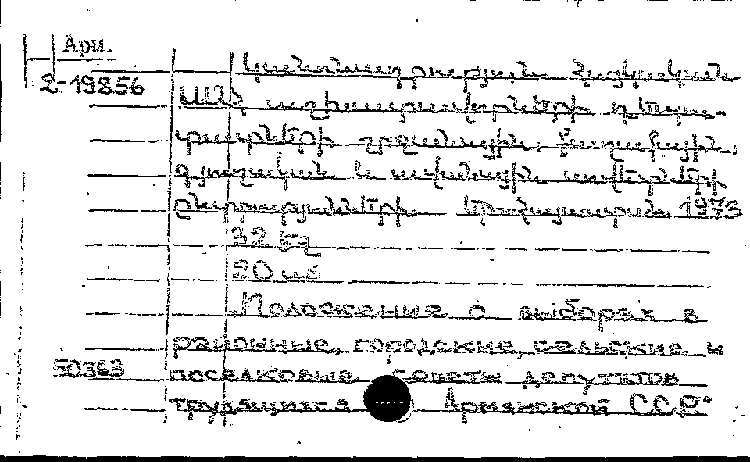 Арм.
2-19856
Կանոնադրություն Հայկական
ՍՍՀ աշխատավորների դեպու-
տատների շրջանային, քաղաքային,
գյուղական և ավանային սովետների
ընտրությունների. Երևան 1973
32 էջ
20 սմ
Положение о выборах в
районные, городские, сельские и
50363
поселковые советы депутатов
трудящихся Армянской ССР